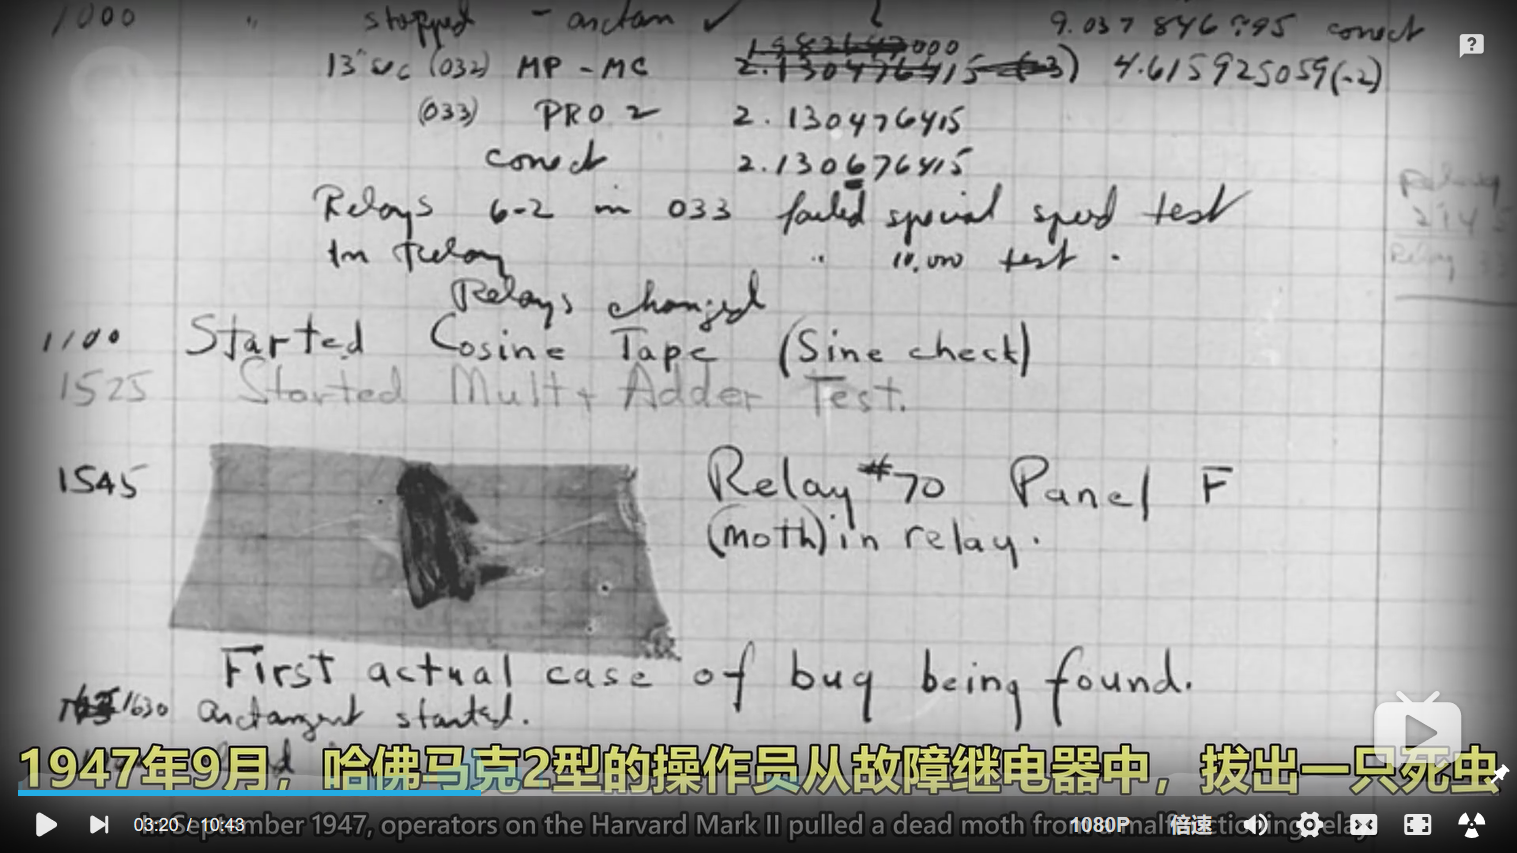 1000 " stopped - arctan ✓
9.037 846 795 conect
13" sec (032) MP - MC 2.130476415 (-3) 4.615925059(-2)
(033) PRO 2 2.130476415
conect 2.130676415
Relays 6-2 in 033 failed special speed test
In Relay " 10.000 test .
Relays changed
1100 Started Cosine Tape (Sine check)
1525 Started Mult+ Adder Test.
1545 Relay #70 Panel F
(moth) in relay.
First actual case of bug being found.
1630 arctangent started.
1947年9月，哈佛马克2型的操作员从故障继电器中，拔出一只死虫
September 1947, operators on the Harvard Mark II pulled a dead moth from a malfunctioning relay
03:20 / 10:43
1080P 倍速